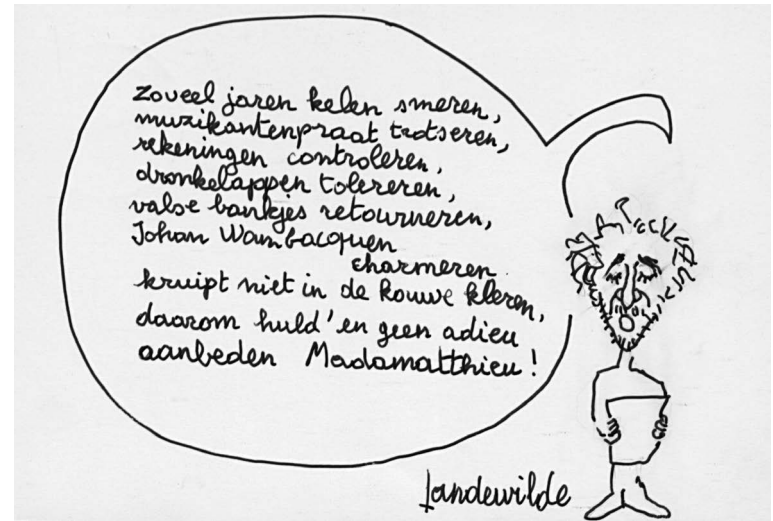 zoveel jaren kelen smeren,
muzikantenpraat trotseren,
rekeningen controleren,
dronkelappen tolereren,
valse bankjes retourneren,
Johan Wambacquen
charmeren.
kruipt niet in de kouwe kleren,
daarom huld' en geen adieu
aanbeden Madamatthieu!
Jandewilde